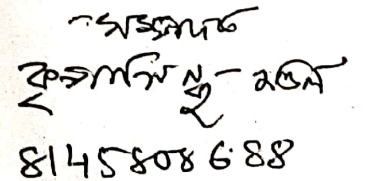 সম্পাদক
কৃপাসিন্ধু মণ্ডল
8145808688